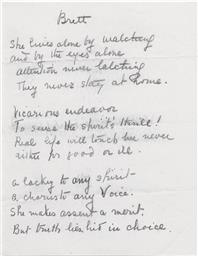 Brett
She lives alone by watching
and by the eyes alone
attention never latching
They never stay at home.
Vicarious endeavor
To seize the spirit's thrill!
Real life will touch her never
either for good or ill.
a lackey to any spirit
a chorister to any Voice.
She makes assent a merit.
But truth lies hid in choice.